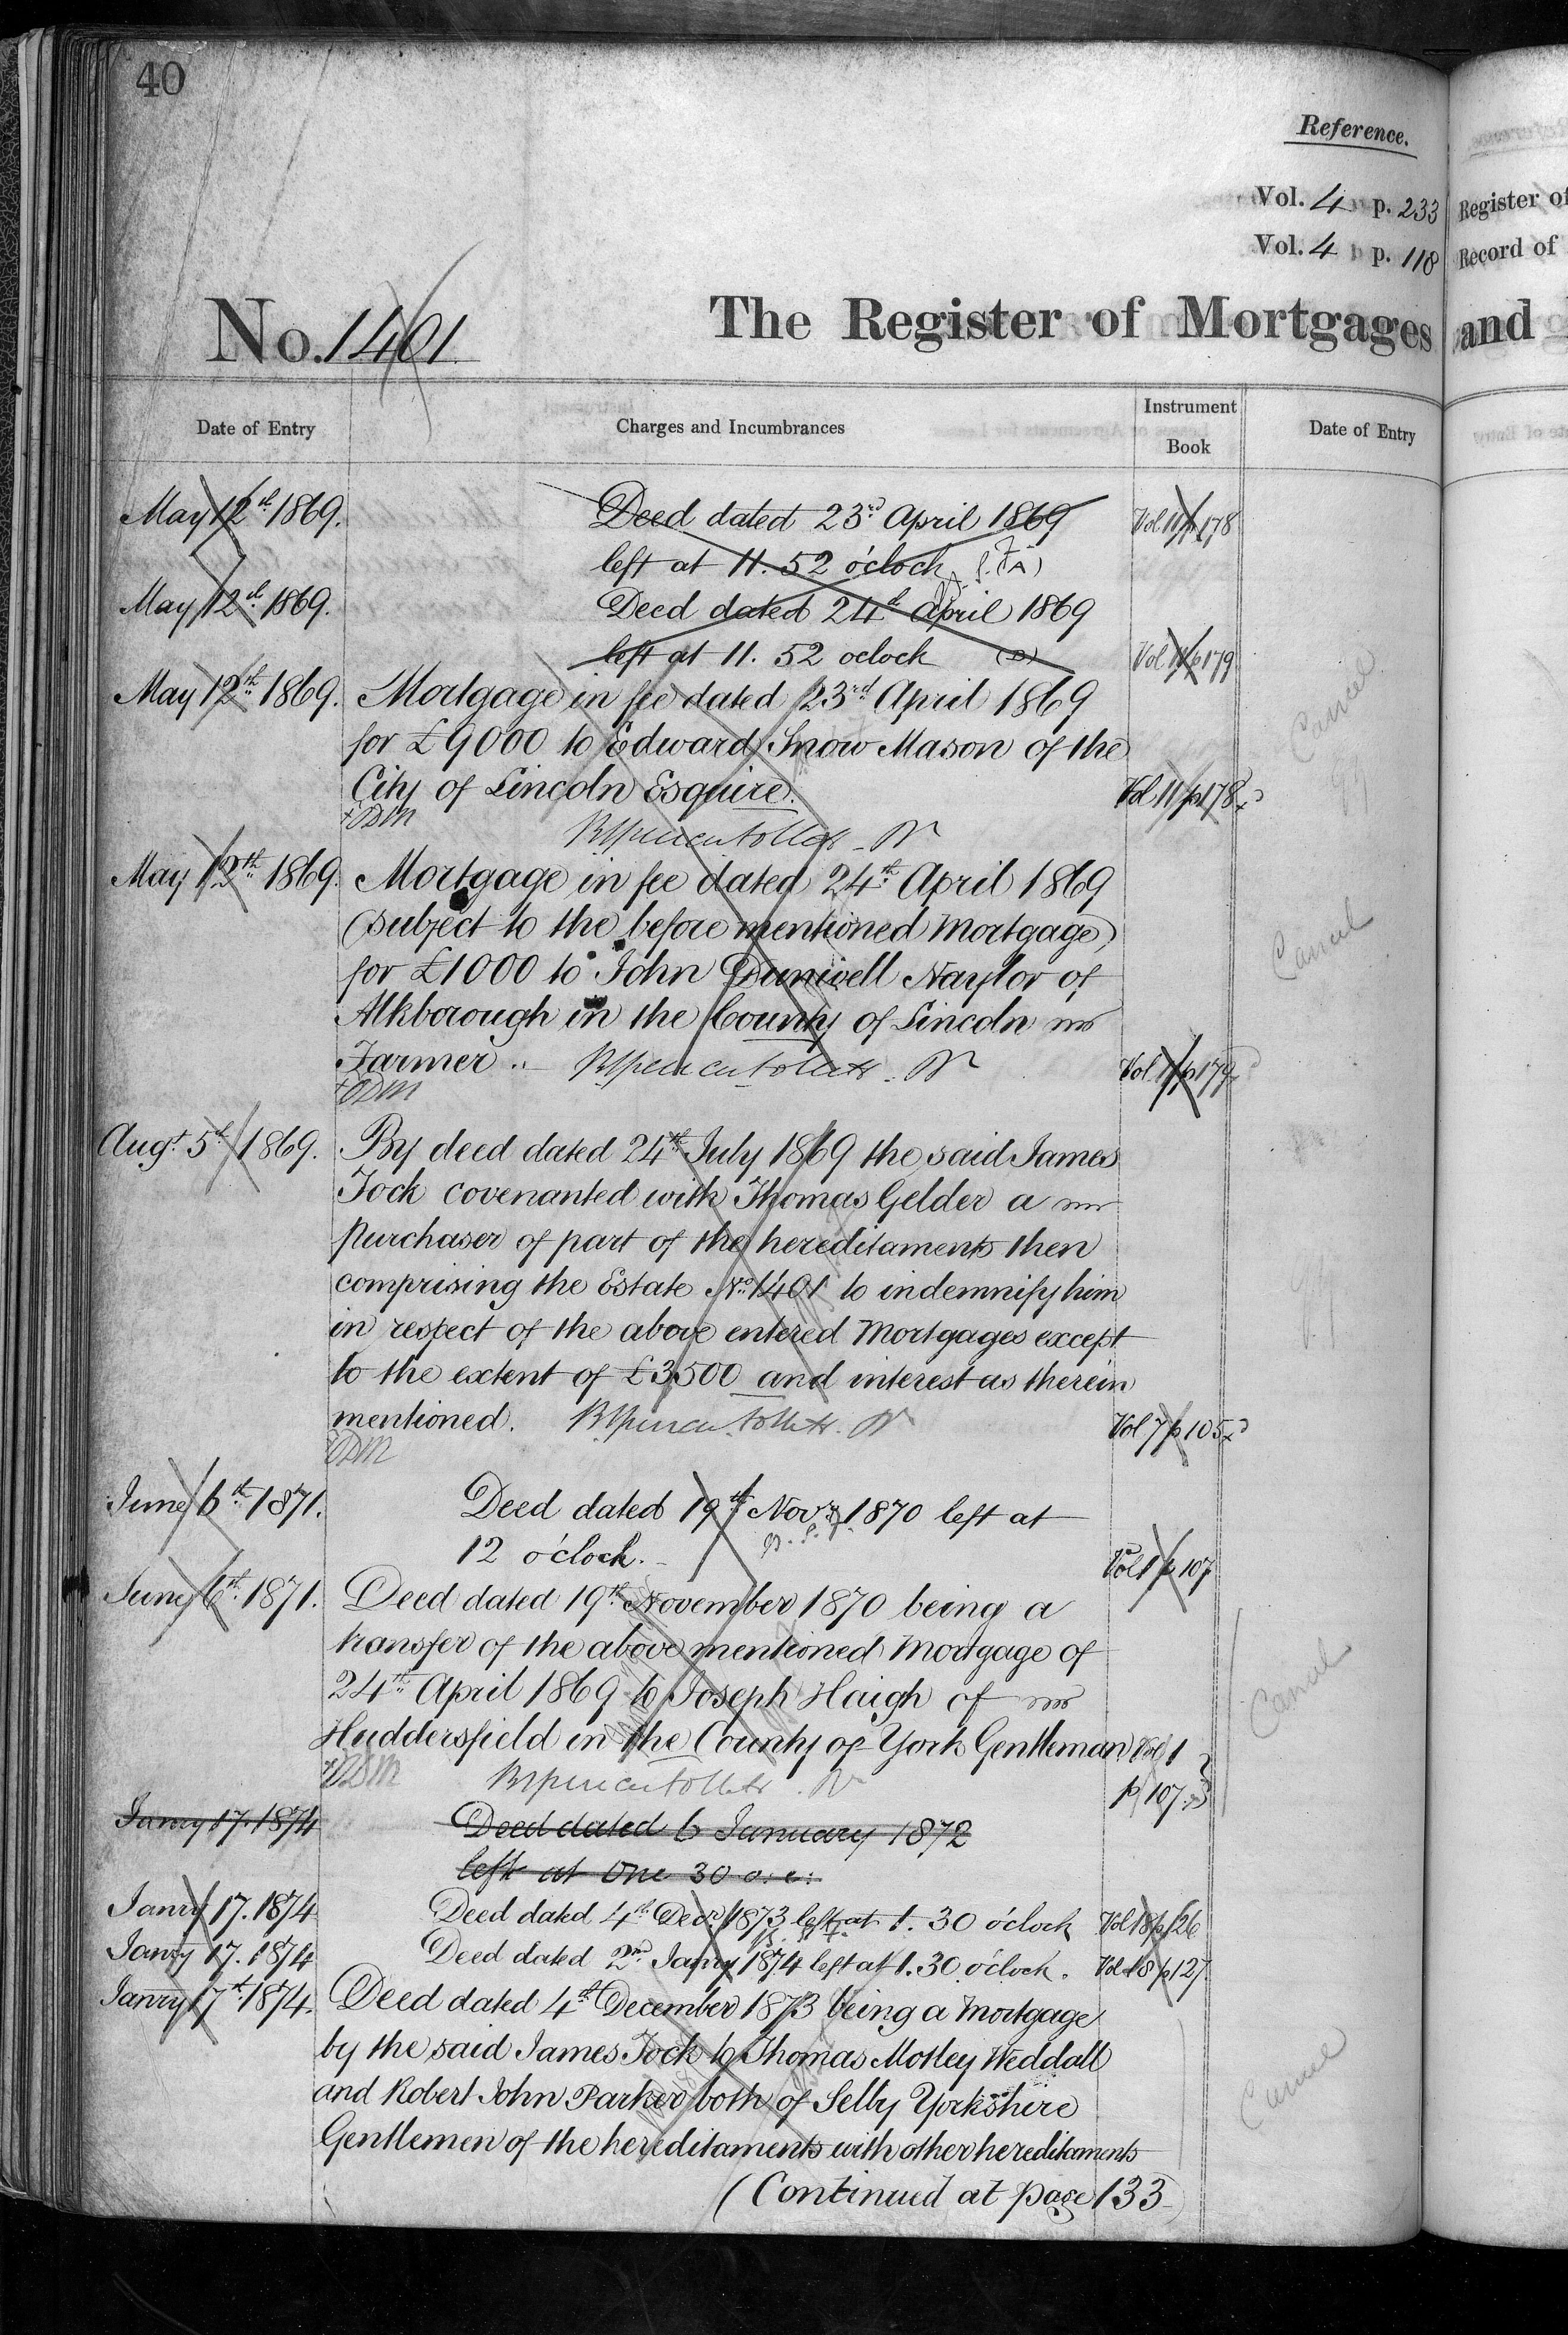 40
Reference.
Vol. 4 p. 233 Register of
Vol. 4 p. 118 Record of
No. 1401 The Register of Mortgages and
Date of Entry Charges and Incumbrances Instrument Book Date of Entry
May 12th 1869. Deed dated 23rd April 1869 Vol 11 p 178
left at 11. 52 o'clock
May 12th 1869. Deed dated 24th April 1869
left at 11. 52 oclock (D) Vol 11 p 179
May 12th 1869. Mortgage in fee dated 23rd April 1869
for £9000 to Edward Snow Mason of the
City of Lincoln Esquire. Vol 11 p 178
May 12th 1869. Mortgage in fee dated 24th April 1869
(subject to the before mentioned Mortgage)
for £1000 to John Duniwell Naylor of
Alkborough in the County of Lincoln
Farmer Vol 11 p 179
Augt. 5th 1869. By deed dated 24th July 1869 the said James
Jock covenanted with Thomas Gelder a
purchaser of part of the hereditaments then
comprising the Estate No. 1401 to indemnify him
in respect of the above entered Mortgages except
to the extent of £3500 and interest as therein
mentioned. Vol 7 p 105
June 6th 1871. Deed dated 19th Novr. 1870 left at
12 o'clock. Vol 1 p 107
June 6th 1871. Deed dated 19th November 1870 being a
transfer of the above mentioned Mortgage of
24th April 1869 to Joseph Haigh of
Huddersfield in the County of York Gentleman Vol 1
p 107
Janry 17. 1874 Deed dated 6 January 1872
left at One 30 o. c:
Janry 17. 1874 Deed dated 4th Decr. 1873 left at 1. 30 o'clock Vol 18 p 126
Janry 17. 1874 Deed dated 2nd Janry 1874 left at 1. 30 o'clock. Vol 18 p 127
Janry 17th 1874. Deed dated 4th December 1873 being a Mortgage
by the said James Jock to Thomas Motley Weddall
and Robert John Parker both of Selby Yorkshire
Gentlemen of the hereditaments with other hereditaments
(Continued at page 133)
Cancel
Cancel
Cancel
Cancel